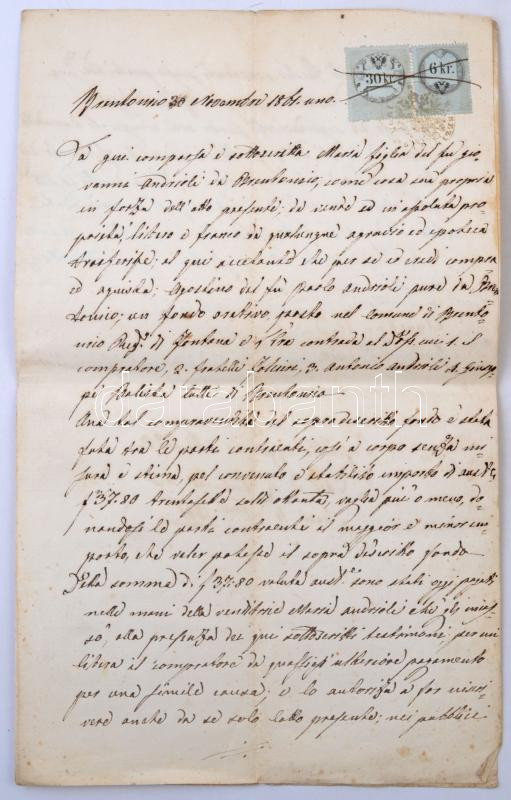 30 kr. 6 kr.
Brentonico 30 Novembre 1861 uno.
Da qui comparsa è sottoscritta Maria figlia del fu gio-
vanni Andrioli da Brentonico, come cosa sua propria
in forza dell'atto presente; da vende ed in assoluta pro-
prietà, libero e franco da qualunque agravio ed ipoteca
trasferisce; al qui accetando che per se ed eredi compera
ed aquista; Agostino del fu Paolo Andrioli pure da Bren-
tonico; un fondo arativo, posto nel comune di Brento-
nico di Fontana è contrada al 1. il
compratore, 2. fratelli 3. Antonio Andrioli 4. Giusep-
pi Balista tutti di Brentonico
Una tal compravendita del sopradescritto fondo è stata
fata tra le parti contraenti, così a corpo senza mi-
sura è stima, pel convenuto è stabilito importo di
f 37:80 trentasette soldi ottanta, vaglia piu' o meno, do-
nandose le parti contraente il maggior è minor im-
porto, che valer potesse il sopra descritto fondo
Detta somma di f 37:80 valuta sono stati oggi pagati
nelle mani della venditrice Maria Andrioli
alla presenza dei qui sottoscritti testimoni, per cui
libera il compratore da qualsiasi ulteriore pagamento
per una simile causa; e lo autoriza a far
vere anche da se solo latto presente; nei pubblici
darabanth